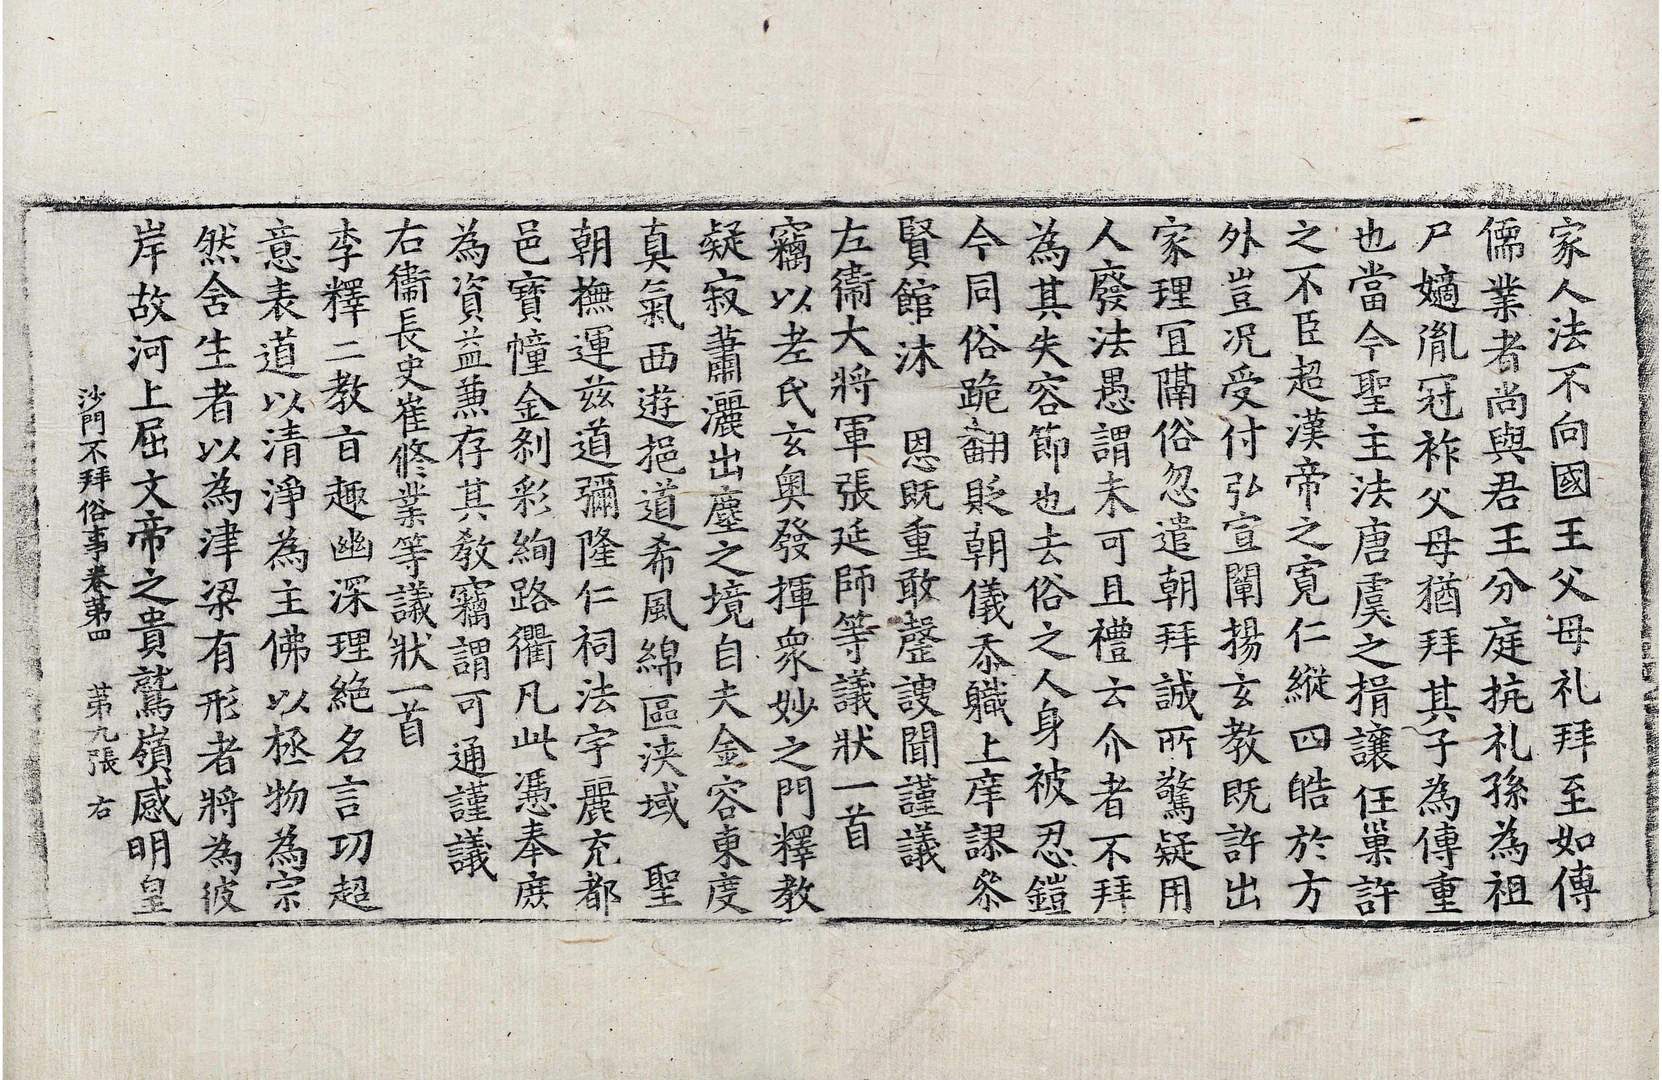 家人法不向國王父母礼拜至如傳
儒業者尚與君王分庭抗礼孫為祖
尸嫡胤冠祚父母猶拜其子為傳重
也當今聖主法唐虞之揖讓任巢許
之不臣超漢帝之寬仁縱四皓於方
外豈况受付弘宣闡揚玄教既許出
家理宜隔俗忽遣朝拜誠所驚疑用
人廢法愚謂未可且禮云介者不拜
為其失容節也去俗之人身被忍鎧
今同俗跪翻貶朝儀忝職上庠謬叅
賢館沐　恩既重敢罄謏聞謹議
左衞大將軍張延師等議狀一首
竊以老氏玄奥發揮衆妙之門釋教
凝寂蕭灑出塵之境自夫金容東度
真氣西遊挹道希風綿區浹域　聖
朝撫運兹道彌隆仁祠法宇麗充都
邑寶幢金刹彩絢路衢凡此憑奉庶
為資益兼存其教竊謂可通謹議
右衞長史崔修業等議狀一首
李釋二教旨趣幽深理絶名言功超
意表道以清淨為主佛以極物為宗
然含生者以為津梁有形者將為彼
岸故河上屈文帝之貴鷲嶺感明皇
沙門不拜俗事卷第四　第九張　右